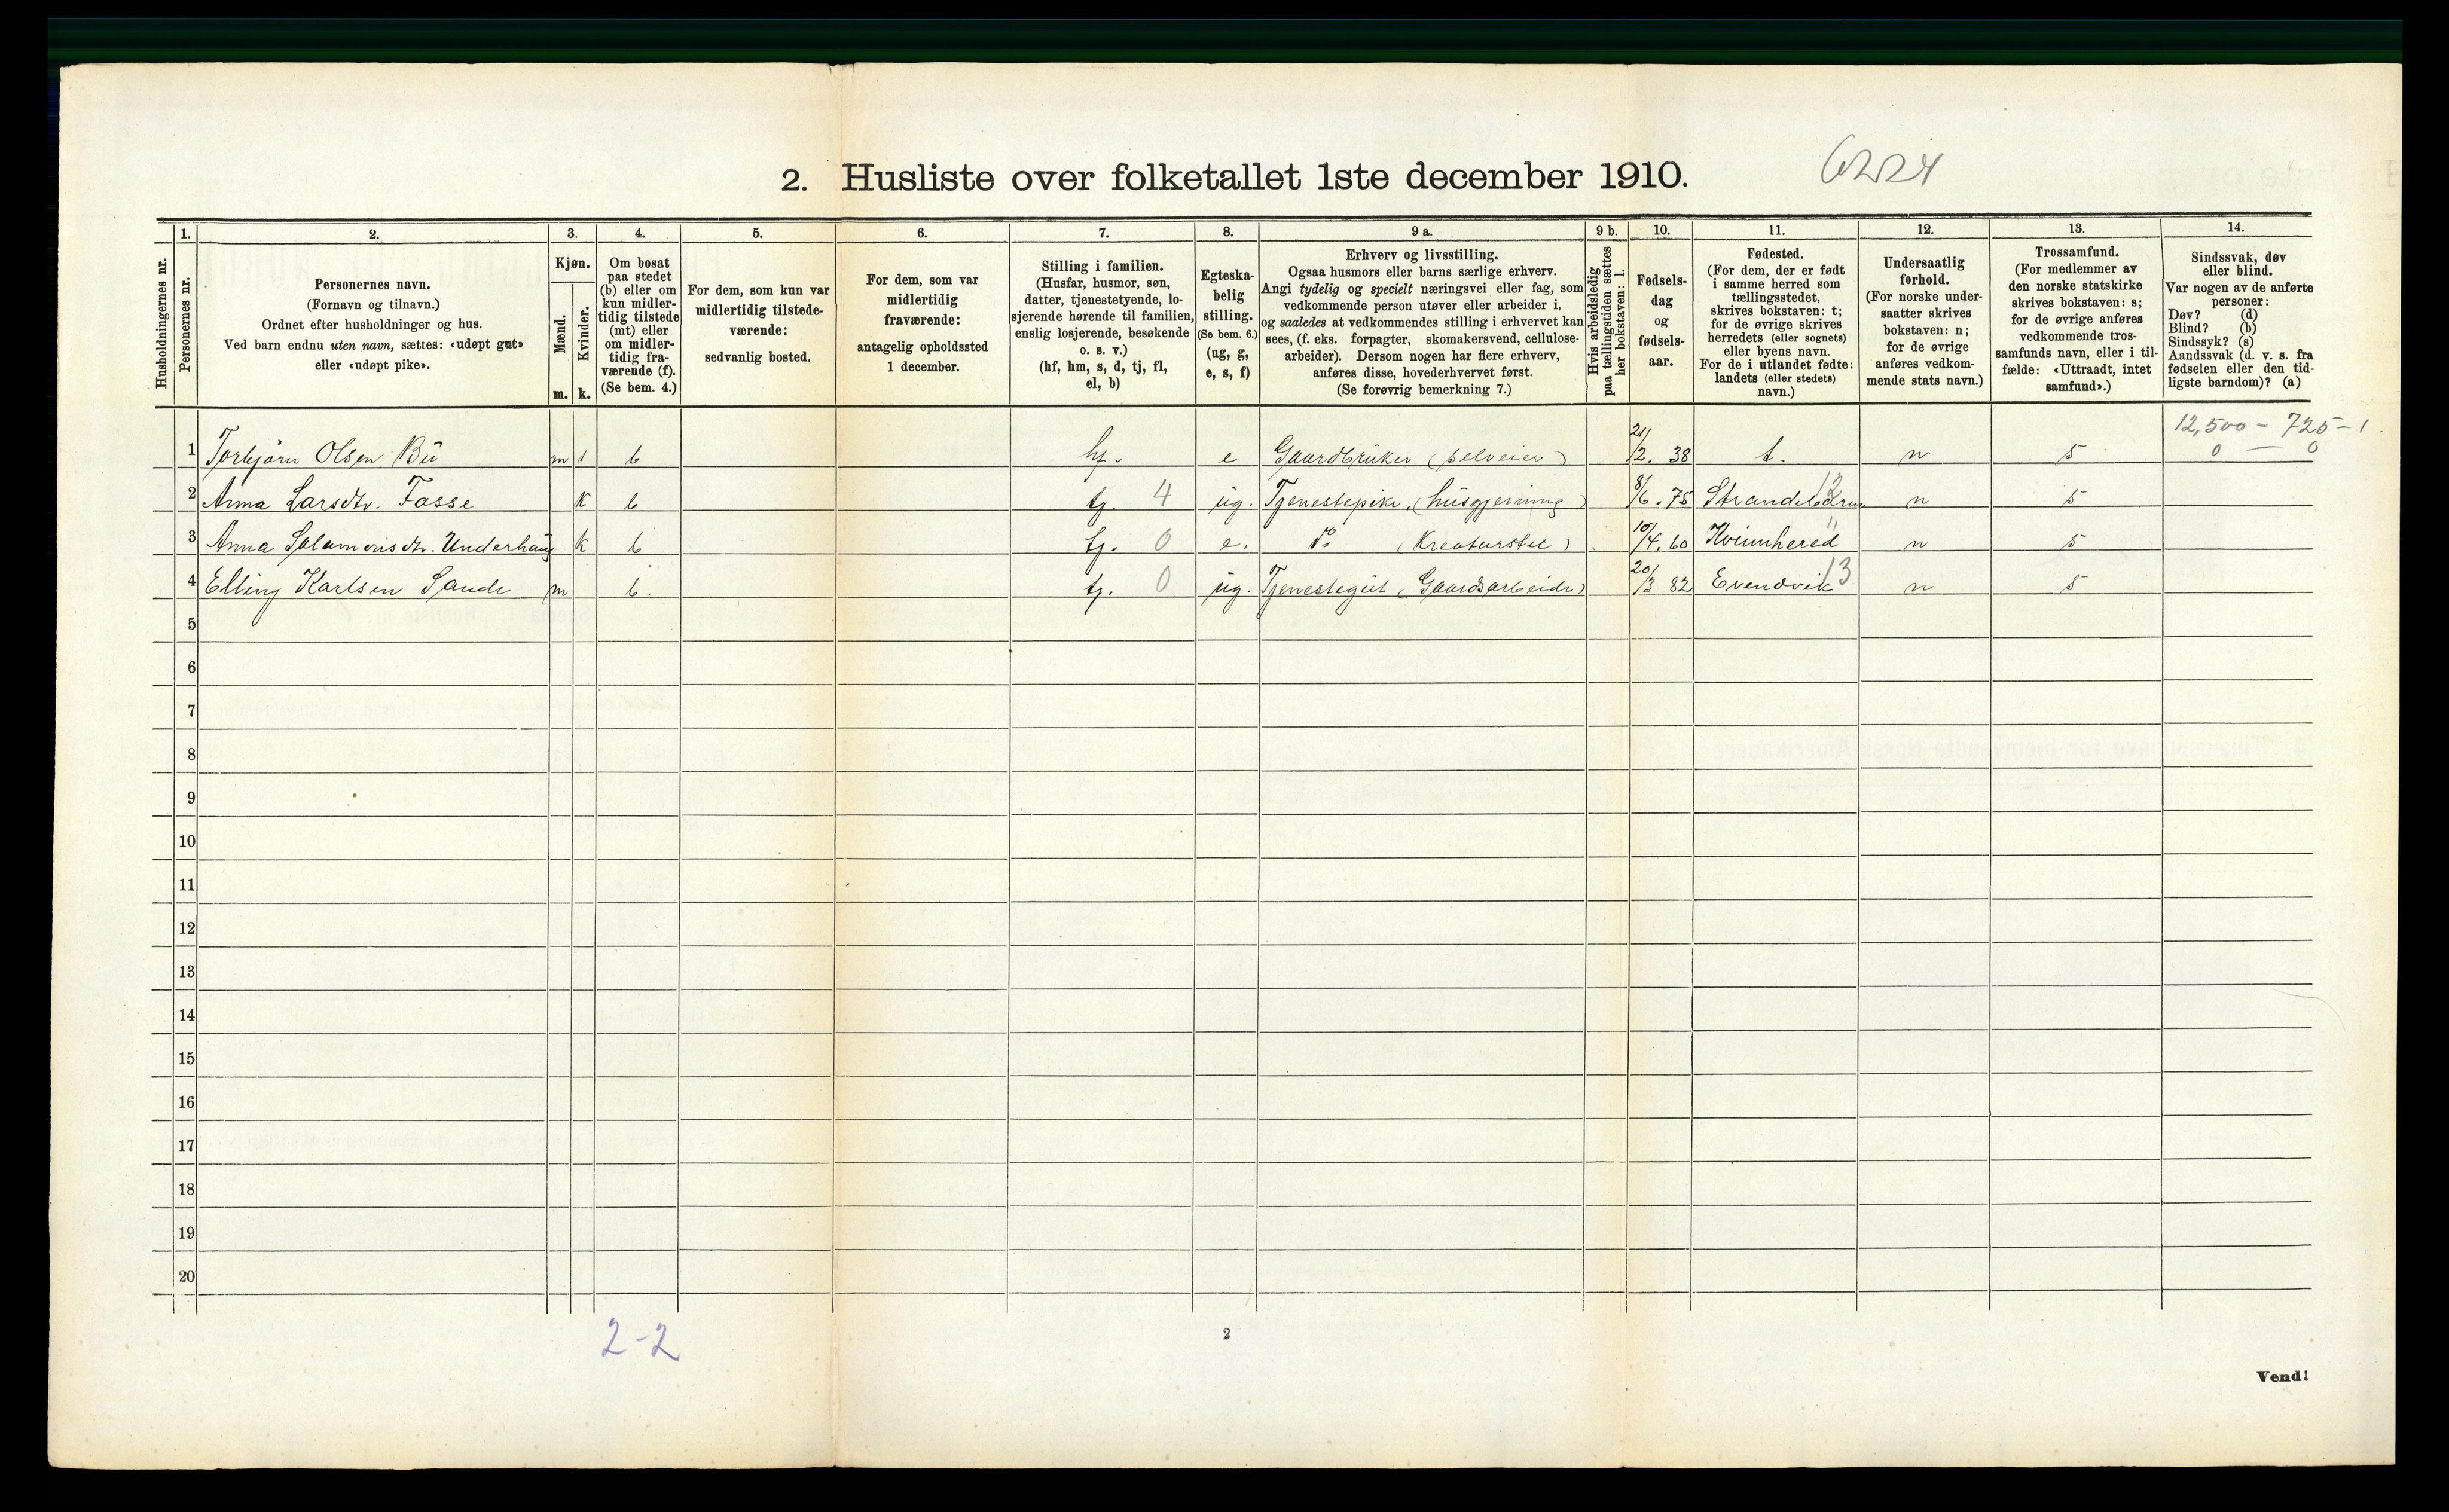 2. Husliste over folketallet 1ste december 1910. 6224
1. 2. 3. 4. 5. 6. 7. 8. 9 a. 9 b. 10. 11. 12. 13. 14.
Husholdningernes nr.
Personernes nr.
Personernes navn.
(Fornavn og tilnavn.)
Ordnet efter husholdninger og hus.
Ved barn endnu uten navn, sættes: «udøpt gut»
eller «udøpt pike».
Kjøn.
Mænd.
Kvinder.
m. k.
Om bosat
paa stedet
(b) eller om
kun midler-
tidig tilstede
(mt) eller
om midler-
tidig fra-
værende (f).
(Se bem. 4.)
For dem, som kun var
midlertidig tilstede-
værende:
sedvanlig bosted.
For dem, som var
midlertidig
fraværende:
antagelig opholdssted
1 december.
Stilling i familien.
(Husfar, husmor, søn,
datter, tjenestetyende, lo-
sjerende hørende til familien,
enslig losjerende, besøkende
o. s. v.)
(hf, hm, s, d, tj, fl,
el, b)
Egteska-
belig
stilling.
(Se bem. 6.)
(ug, g,
e, s, f)
Erhverv og livsstilling.
Ogsaa husmors eller barns særlige erhverv.
Angi tydelig og specielt næringsvei eller fag, som
vedkommende person utøver eller arbeider i,
og saaledes at vedkommendes stilling i erhvervet kan
sees, (f. eks. forpagter, skomakersvend, cellulose-
arbeider). Dersom nogen har flere erhverv,
anføres disse, hovederhvervet først.
(Se forøvrig bemerkning 7.)
Hvis arbeidsledig
paa tællingstiden sættes
her bokstaven: l.
Fødsels-
dag
og
fødsels-
aar.
Fødested.
(For dem, der er født
i samme herred som
tællingsstedet,
skrives bokstaven: t;
for de øvrige skrives
herredets (eller sognets)
eller byens navn.
For de i utlandet fødte:
landets (eller stedets)
navn.)
Undersaatlig
forhold.
(For norske under-
saatter skrives
bokstaven: n;
for de øvrige
anføres vedkom-
mende stats navn.)
Trossamfund.
(For medlemmer av
den norske statskirke
skrives bokstaven: s;
for de øvrige anføres
vedkommende tros-
samfunds navn, eller i til-
fælde: «Uttraadt, intet
samfund».)
Sindssvak, døv
eller blind.
Var nogen av de anførte
personer:
Døv? (d)
Blind? (b)
Sindssyk? (s)
Aandssvak (d. v. s. fra
fødselen eller den tid-
ligste barndom)? (a)
12,500 - 725 - 1
1 Torbjørn Olsen Bü m 1 b hf. e Gaardbruker (selveier) 21/2. 38 t. n s 0 - 0
2 Anna Larsdtr. Fosse k b tj. 4 ug. Tjenestepike (husgjerning) 8/6. 75 Strandebarm 12 n s
3 Anna Salamonsdtr. Underhaug k b tj. 0 e. do (Kreaturstel) 10/4. 60 Kvinnhered " n s
4 Elling Karlsen Sande m b. tj. 0 ug. Tjenestegut (Gaardsarbeide) 20/3 82 Evendvik 13 n s
5
6
7
8
9
10
11
12
13
14
15
16
17
18
19
20
2-2
2
Vend!